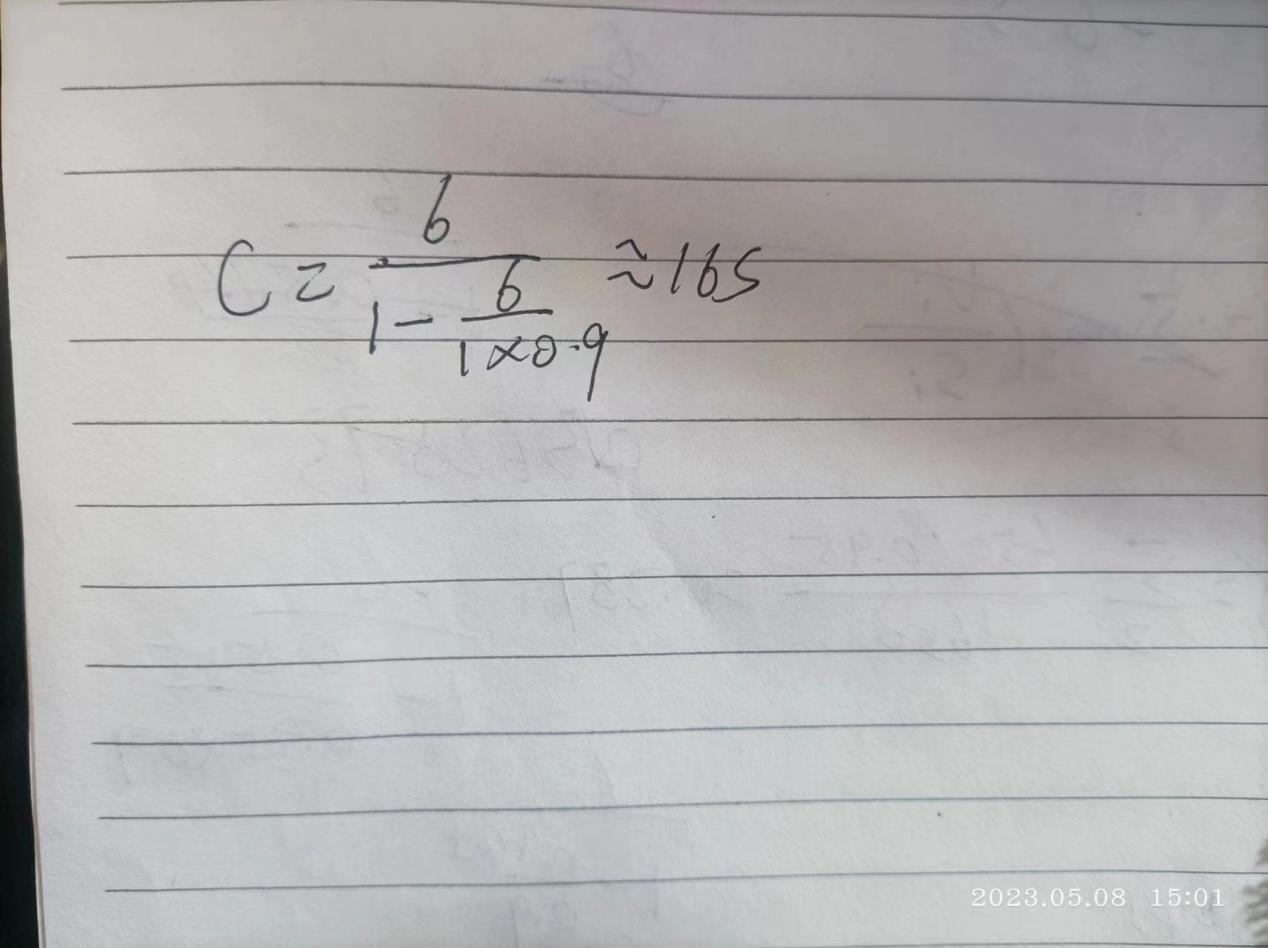 C = \frac{6}{1 - \frac{6}{1 × 0.9}} ≈ 165
2023.05.08 15:01